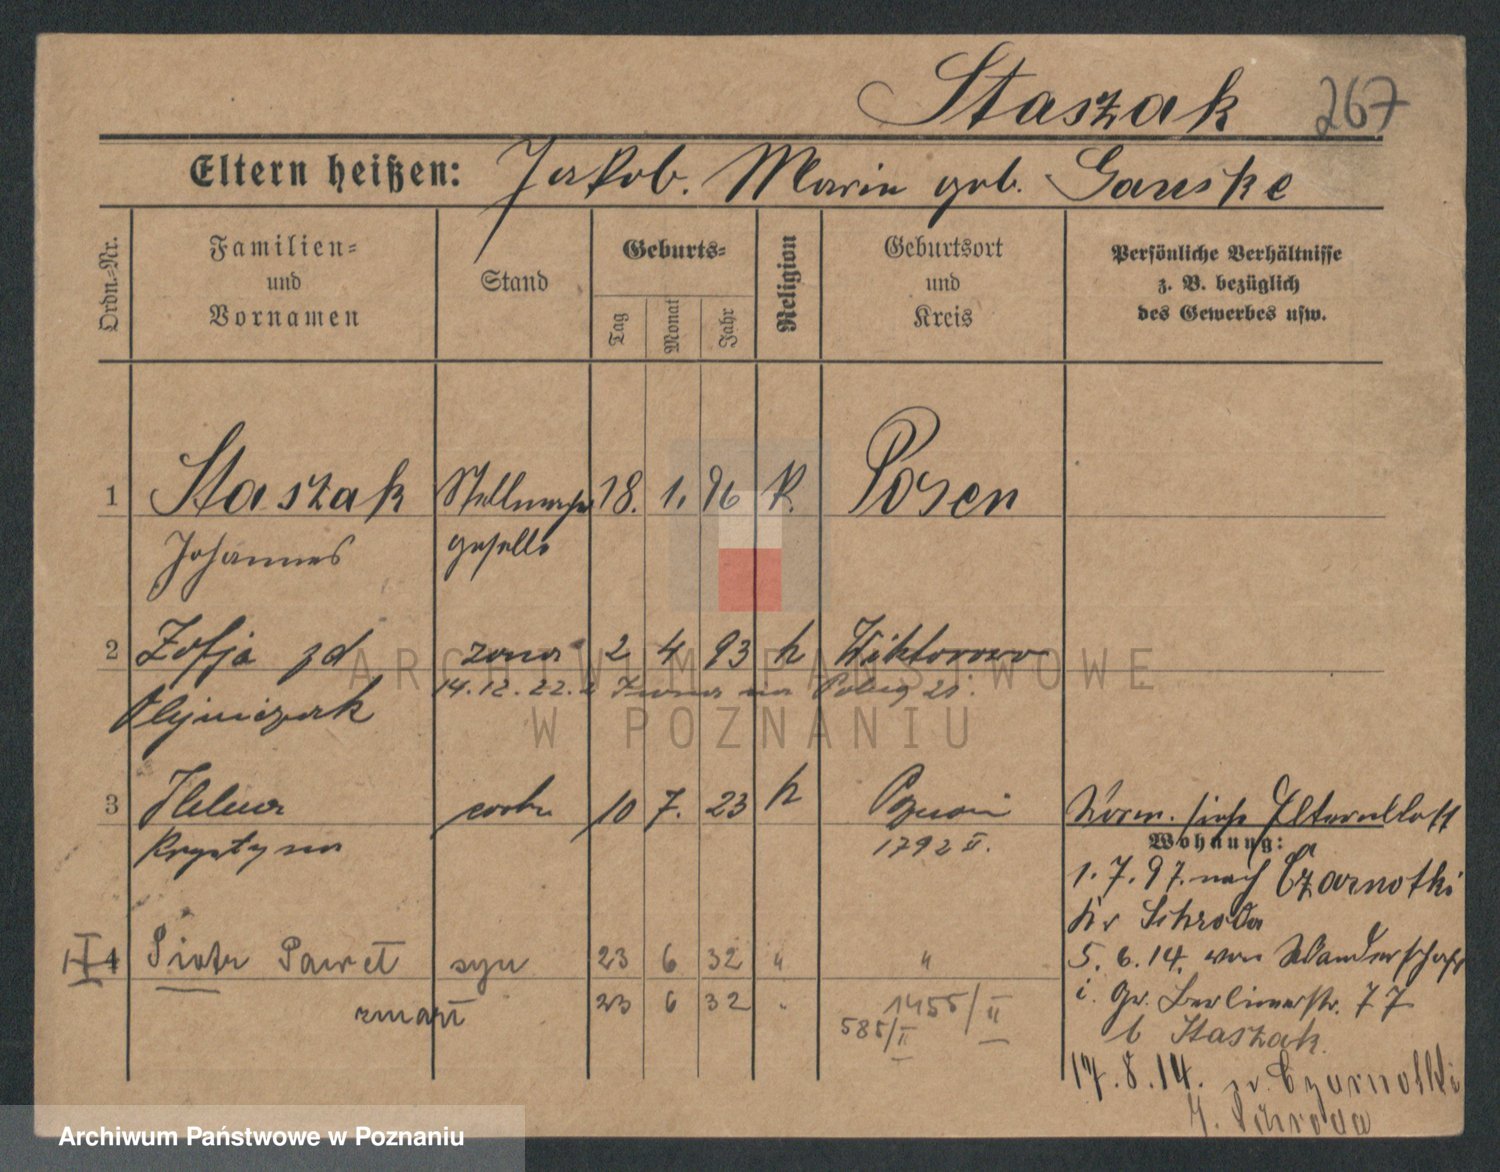 Staszak 267
Eltern heißen: Jakob. Marie geb. Ganske
Ordn.-Nr.
Familien-
und
Vornamen
Stand
Geburts-
Tag
Monat
Jahr
Religion
Geburtsort
und
Kreis
Persönliche Verhältnisse
z. B. bezüglich
des Gewerbes usw.
1 Staszak Stellmacher 18. 1. 96 K. Posen
Johannes geselle
2 Zofja zd żona 2 4 93 k Wiktorowo
14.12.22
Olejniczak
3 Helena corka 10 7. 23 k Poznań
Krystyna 1792 II.
Vorm. siehe Elternblatt
Wohnung:
1. 7. 97. nach Czarnotki
Kr Schroda
4 Piotr Paweł syn 23 6 32 " "
5. 6. 14. von Wanderschaft
zmarł 23 6 32 1455/II
585/II
i. Gr. Berlinerstr. 77
b Staszak.
17. 8. 14. Czarnotki
K. Schroda
ARCHIWUM PAŃSTWOWE
W POZNANIU
Archiwum Państwowe w Poznaniu